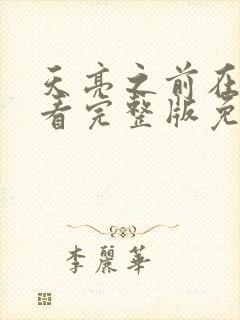 天亮之前在
看完整版免
李麗華